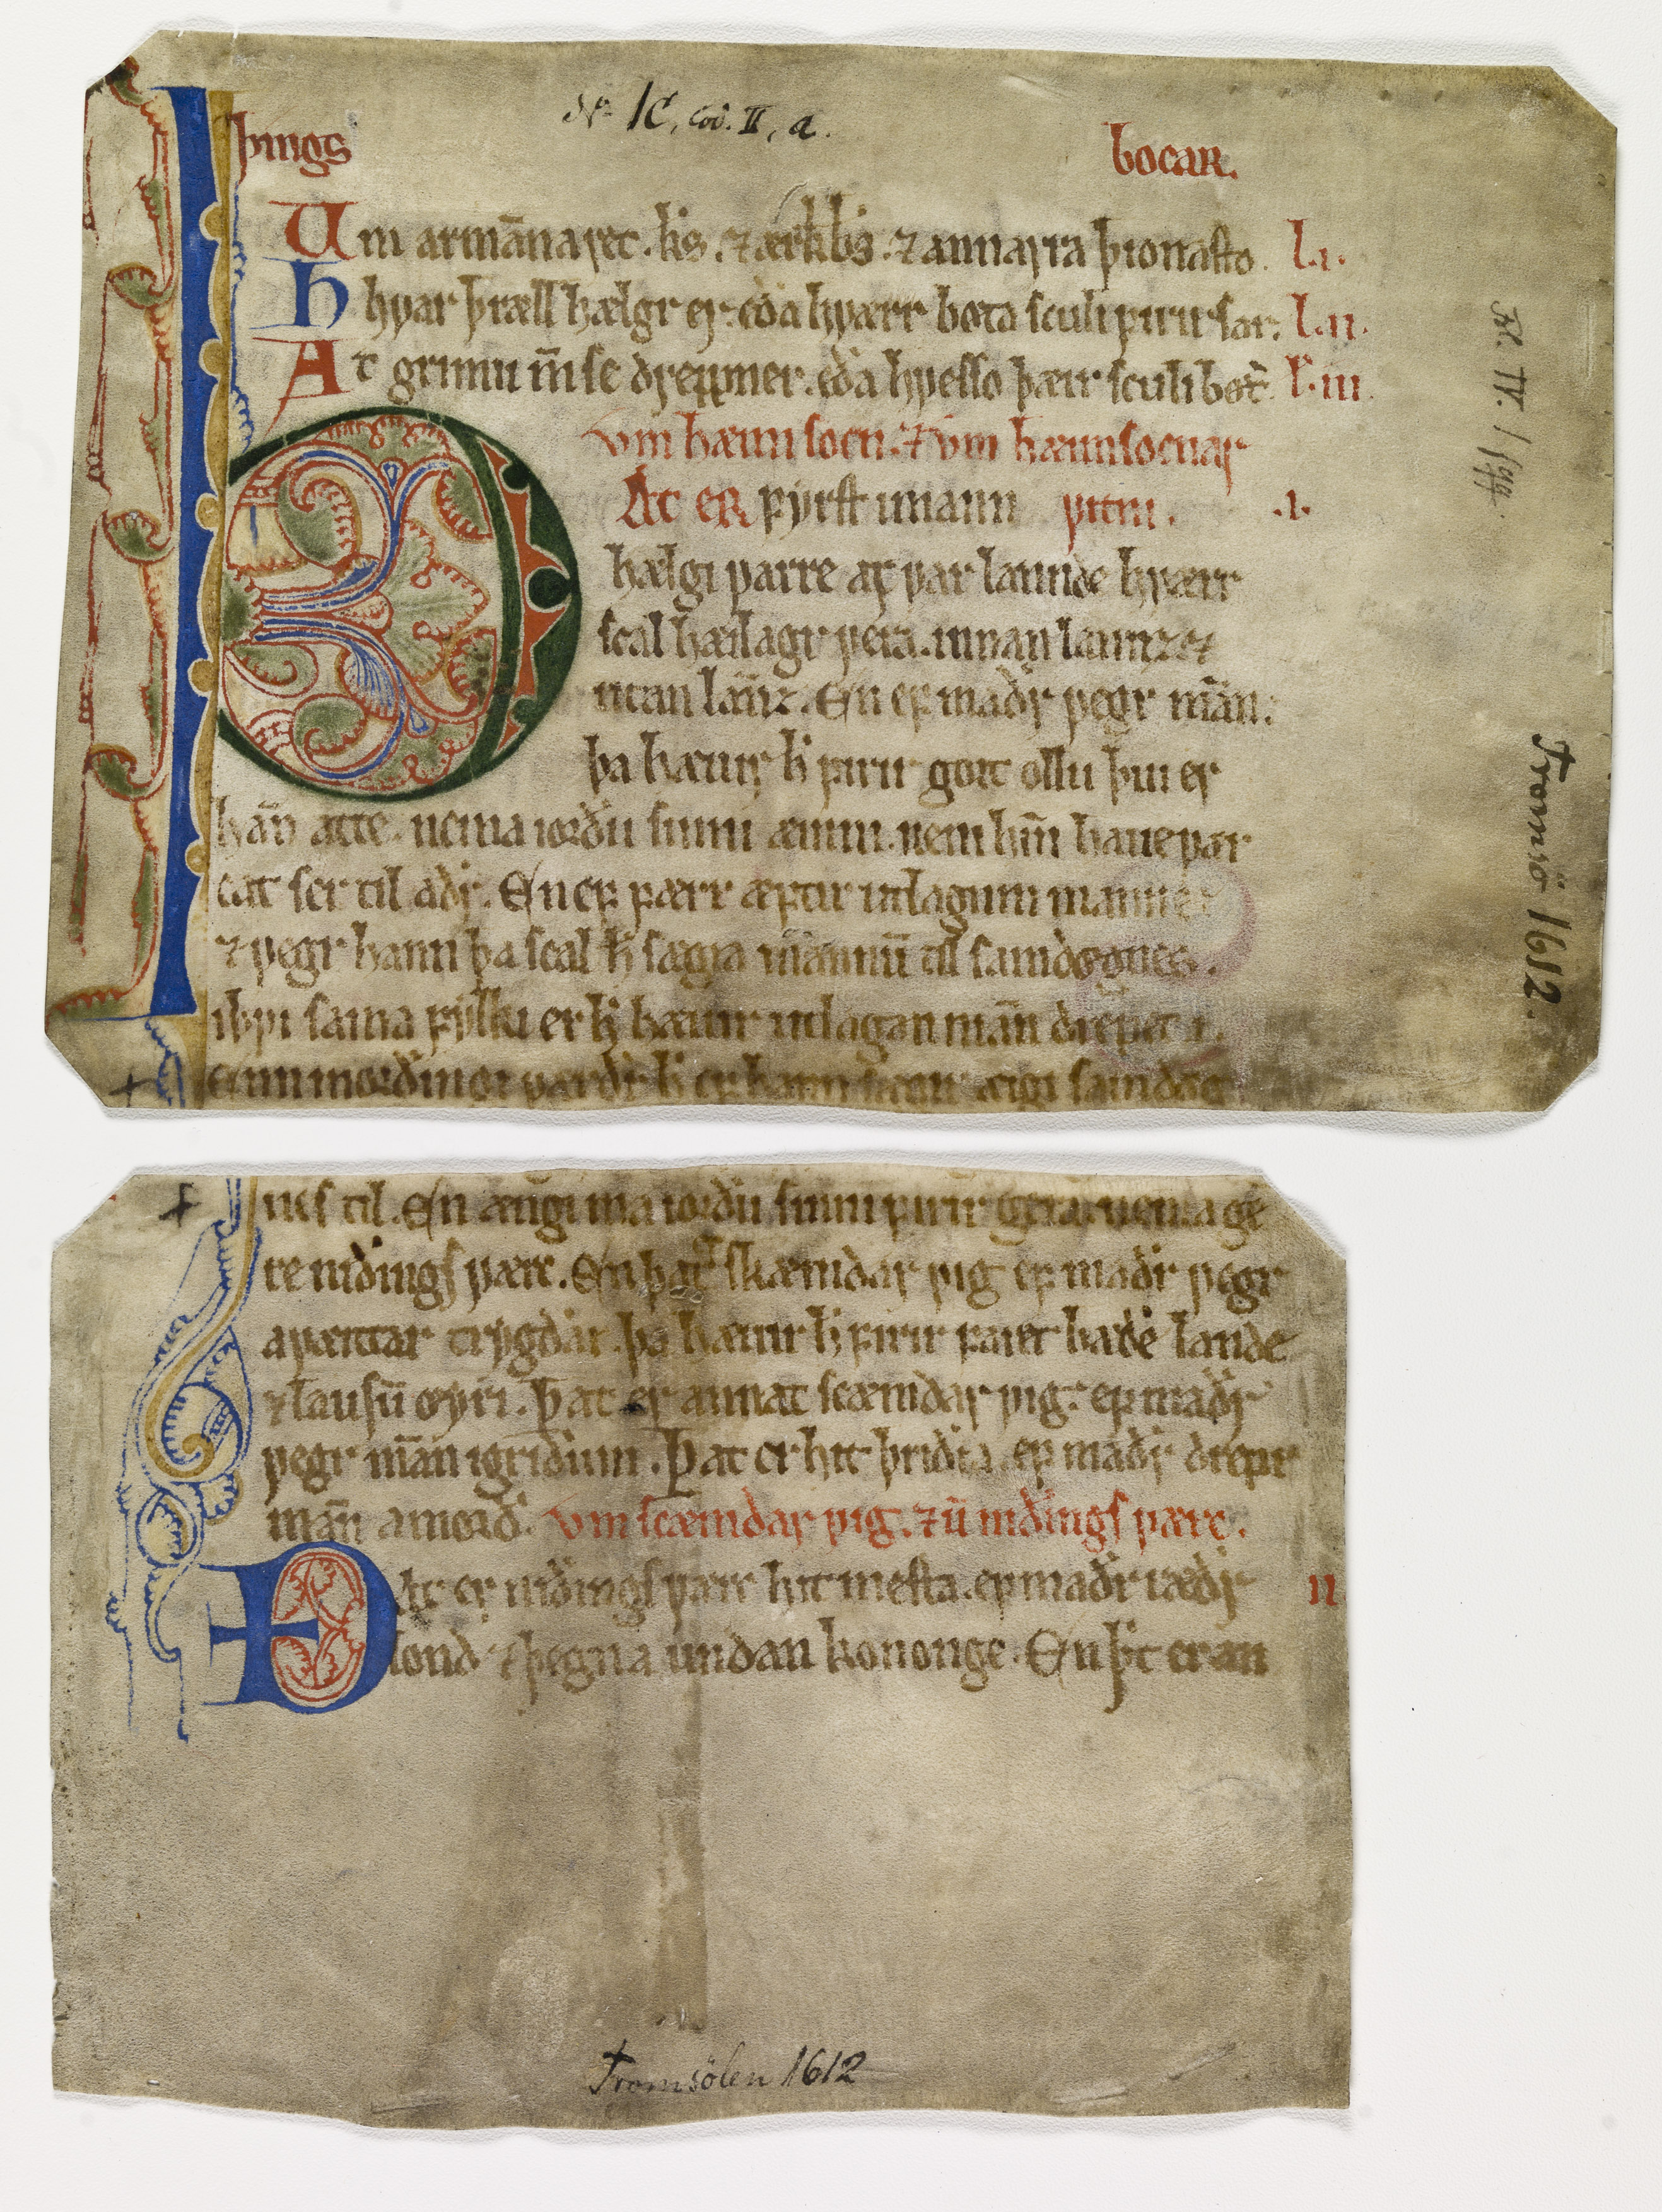 Nº 1C, Cod. II, a.
þings bocar.
Um armānaret. k̅s. ⁊ ærkbs̅. ⁊ annarra þionasto. l.i.
Hhvar þræll hælgr er. eða hværr bøta sculi firir sar. l.ii.
At grimu m̅ se drepmer. eða hvesso þæir sculi bøt̅. l.iii
Vm hæim socn. ⁊ vm hæimsocnar
Þat ER fyrst imann vitni. .i.
hælgi varre at var lannde hværr
scal hæilagr vera. innan lannz ⁊
utan lan̅z. En ef maðr vegr man̅.
þa hævir h̅ firir gort ollu þvi er
han̅ atte. nema iorðu sinni æinni. nem hn̅i have var
eat ser til aðr. En ef færr æptir utlagum manne
⁊ vegr hann þa scal h̅ sægia mannu̅ til samdøgnes.
iþvi sama fylki er h̅ hævir utlagan man̅ drepet i.
enn morðingi værðr h̅ ef hann sægir æigi samdøg
nes til. En ængi ma iorðu sinni firir gera. nema ge
re niðings værc. En þat skæmdar vig ef maðr vegr
a væittar trygðar. þa hævir h̅ firir faret bæðe lande
⁊ lausu̅ øyri. Þat er annat scæmdar vig. ef maðr
vegr man̅ igriðum. Þat er hit þriðia ef maðr drepr
man̅ a morð. Vm scæmdar vig. ⁊ u̅ niðings værc.
Þat er niðings værc hit mesta. ef maðr ræðr ii
lond ⁊ þegna undan kononge. En þ̅t er an
Tromsö 1612.
Tromsölen 1612